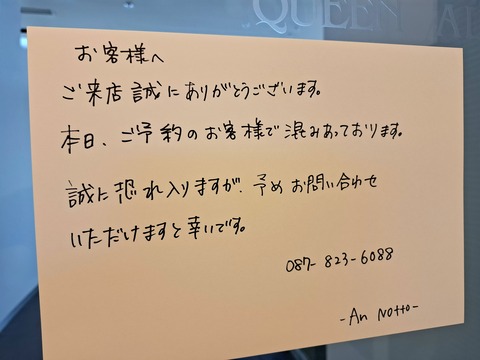 QUEEN
お客様へ
ご来店誠にありがとうございます。
本日、ご予約のお客様で混みあっております。
誠に恐れ入りますが、予めお問い合わせ
いただけますと幸いです。
087-823-6088
-An Notto-